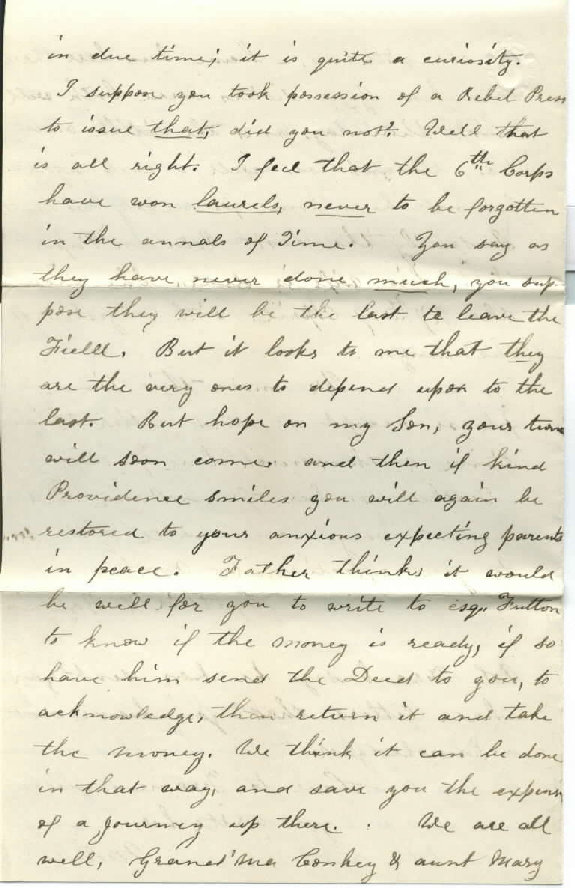 in due time; it is quite a curiosity.
I suppose you took possession of a Rebel Press
to issue that, did you not? Well that
is all right. I feel that the 6th Corps
have won laurels, never to be forgotten
in the annals of Time. You say as
they have never done much, you sup-
pose they will be the last to leave the
Fielll. But it looks to me that they
are the very ones to depend upon to the
last. But hope on my Son, your turn
will soon come, and then if kind
Providence smiles you will again be
restored to your anxious expecting parents
in peace. Father thinks it would
be well for you to write to esq. Fulton
to know if the money is ready, if so
have him send the Deed to you, to
acknowledge, then return it and take
the money. We think it can be done
in that way, and save you the expense
of a journey up there. We are all
well, Grand'ma Conkey & aunt Mary